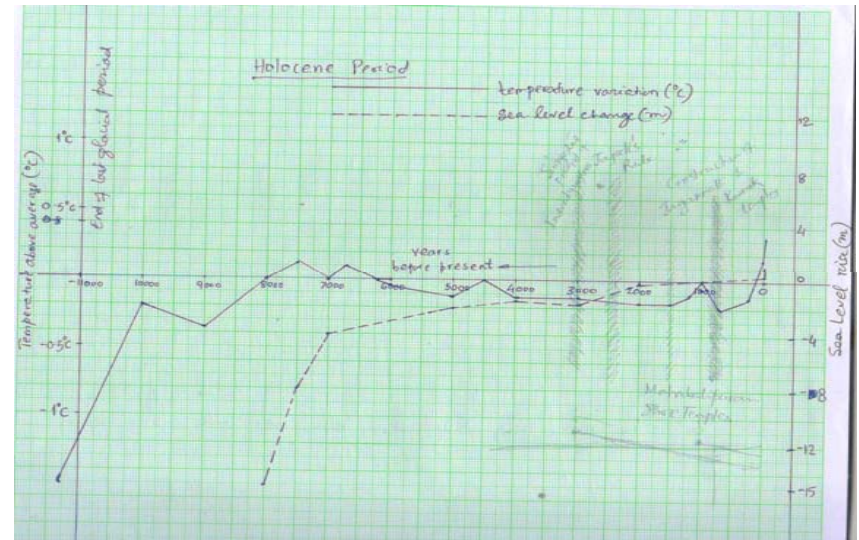 Holocene Period
temperature variation (°C)
sea level change (m)
Temperature above average (°C)
End of last glacial period
1°C
0.5°C
-0.5°C
-1°C
years
before present
11000
10000
9000
8000
7000
6000
5000
4000
3000
2000
1000
0
Construction of
Rule
Temples
12
8
4
0
-4
-8
-12
-15
Sea Level rise (m)